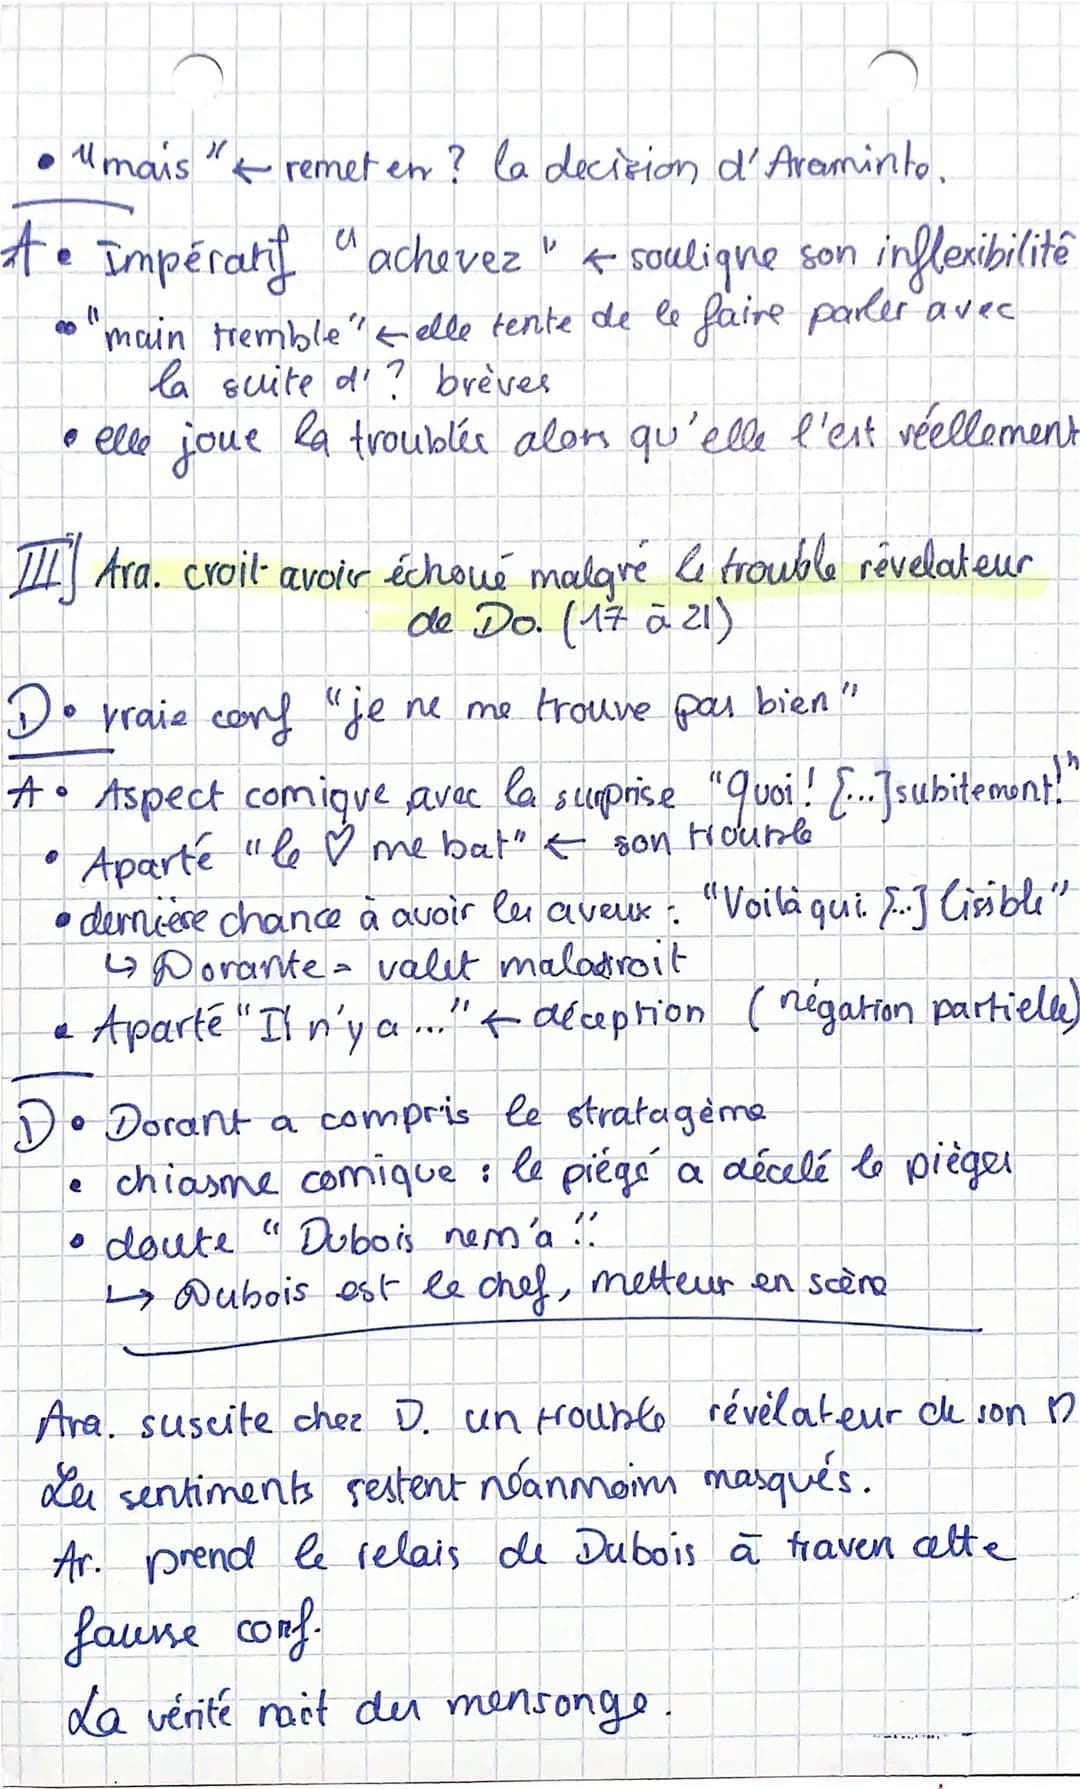 • "mais" ← remet en ? la decision d'Araminto.
A • Impératif "achevez" ← souligne son inflexibilité
• "main tremble" ← elle tente de le faire parler avec
la suite d' ? brèves
• elle joue la troublée alors qu'elle l'est réellement
III] Ara. croit avoir échoué malgré le trouble révélateur
de Do. (17 à 21)
D • vraie conf "je ne me trouve pas bien"
A • Aspect comique avec la surprise "Quoi ! [...] subitement !"
• Aparté "le ♡ me bat" ← son trouble
• dernière chance à avoir les aveux : "Voilà qui [..] lisible"
↳ Dorante = valet maladroit
• Aparté "Il n'y a ..." ← déception (négation partielle)
D • Dorant a compris le stratagème
• chiasme comique : le piégé a décelé le piège
• doute "Dubois ne m'a !!
↳ Dubois est le chef, metteur en scène
Ara. suscite chez D. un trouble révélateur de son
Les sentiments restent néanmoins masqués.
Ar. prend le relais de Dubois à travers cette
fausse conf.
La vérité nait du mensonge.